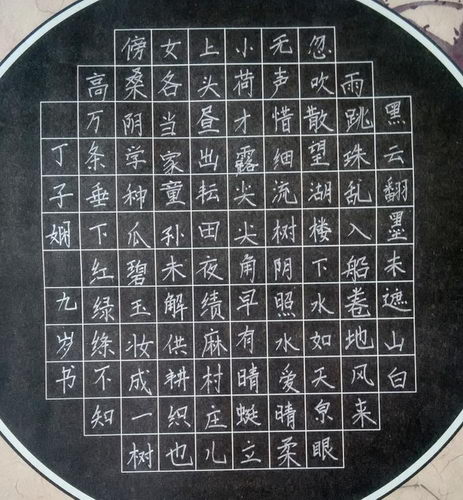 黑云翻墨未遮山白
雨跳珠乱入船卷地风来
忽吹散望湖楼下水如天泉眼
无声惜细流树阴照水爱晴柔
小荷才露尖尖角早有晴蜓立
上头昼出耘田夜绩麻村庄儿
女各当家童孙未解供耕织也
傍桑阴学种瓜碧玉妆成一树
高万条垂下红绿绦不知
丁子娴 九岁书